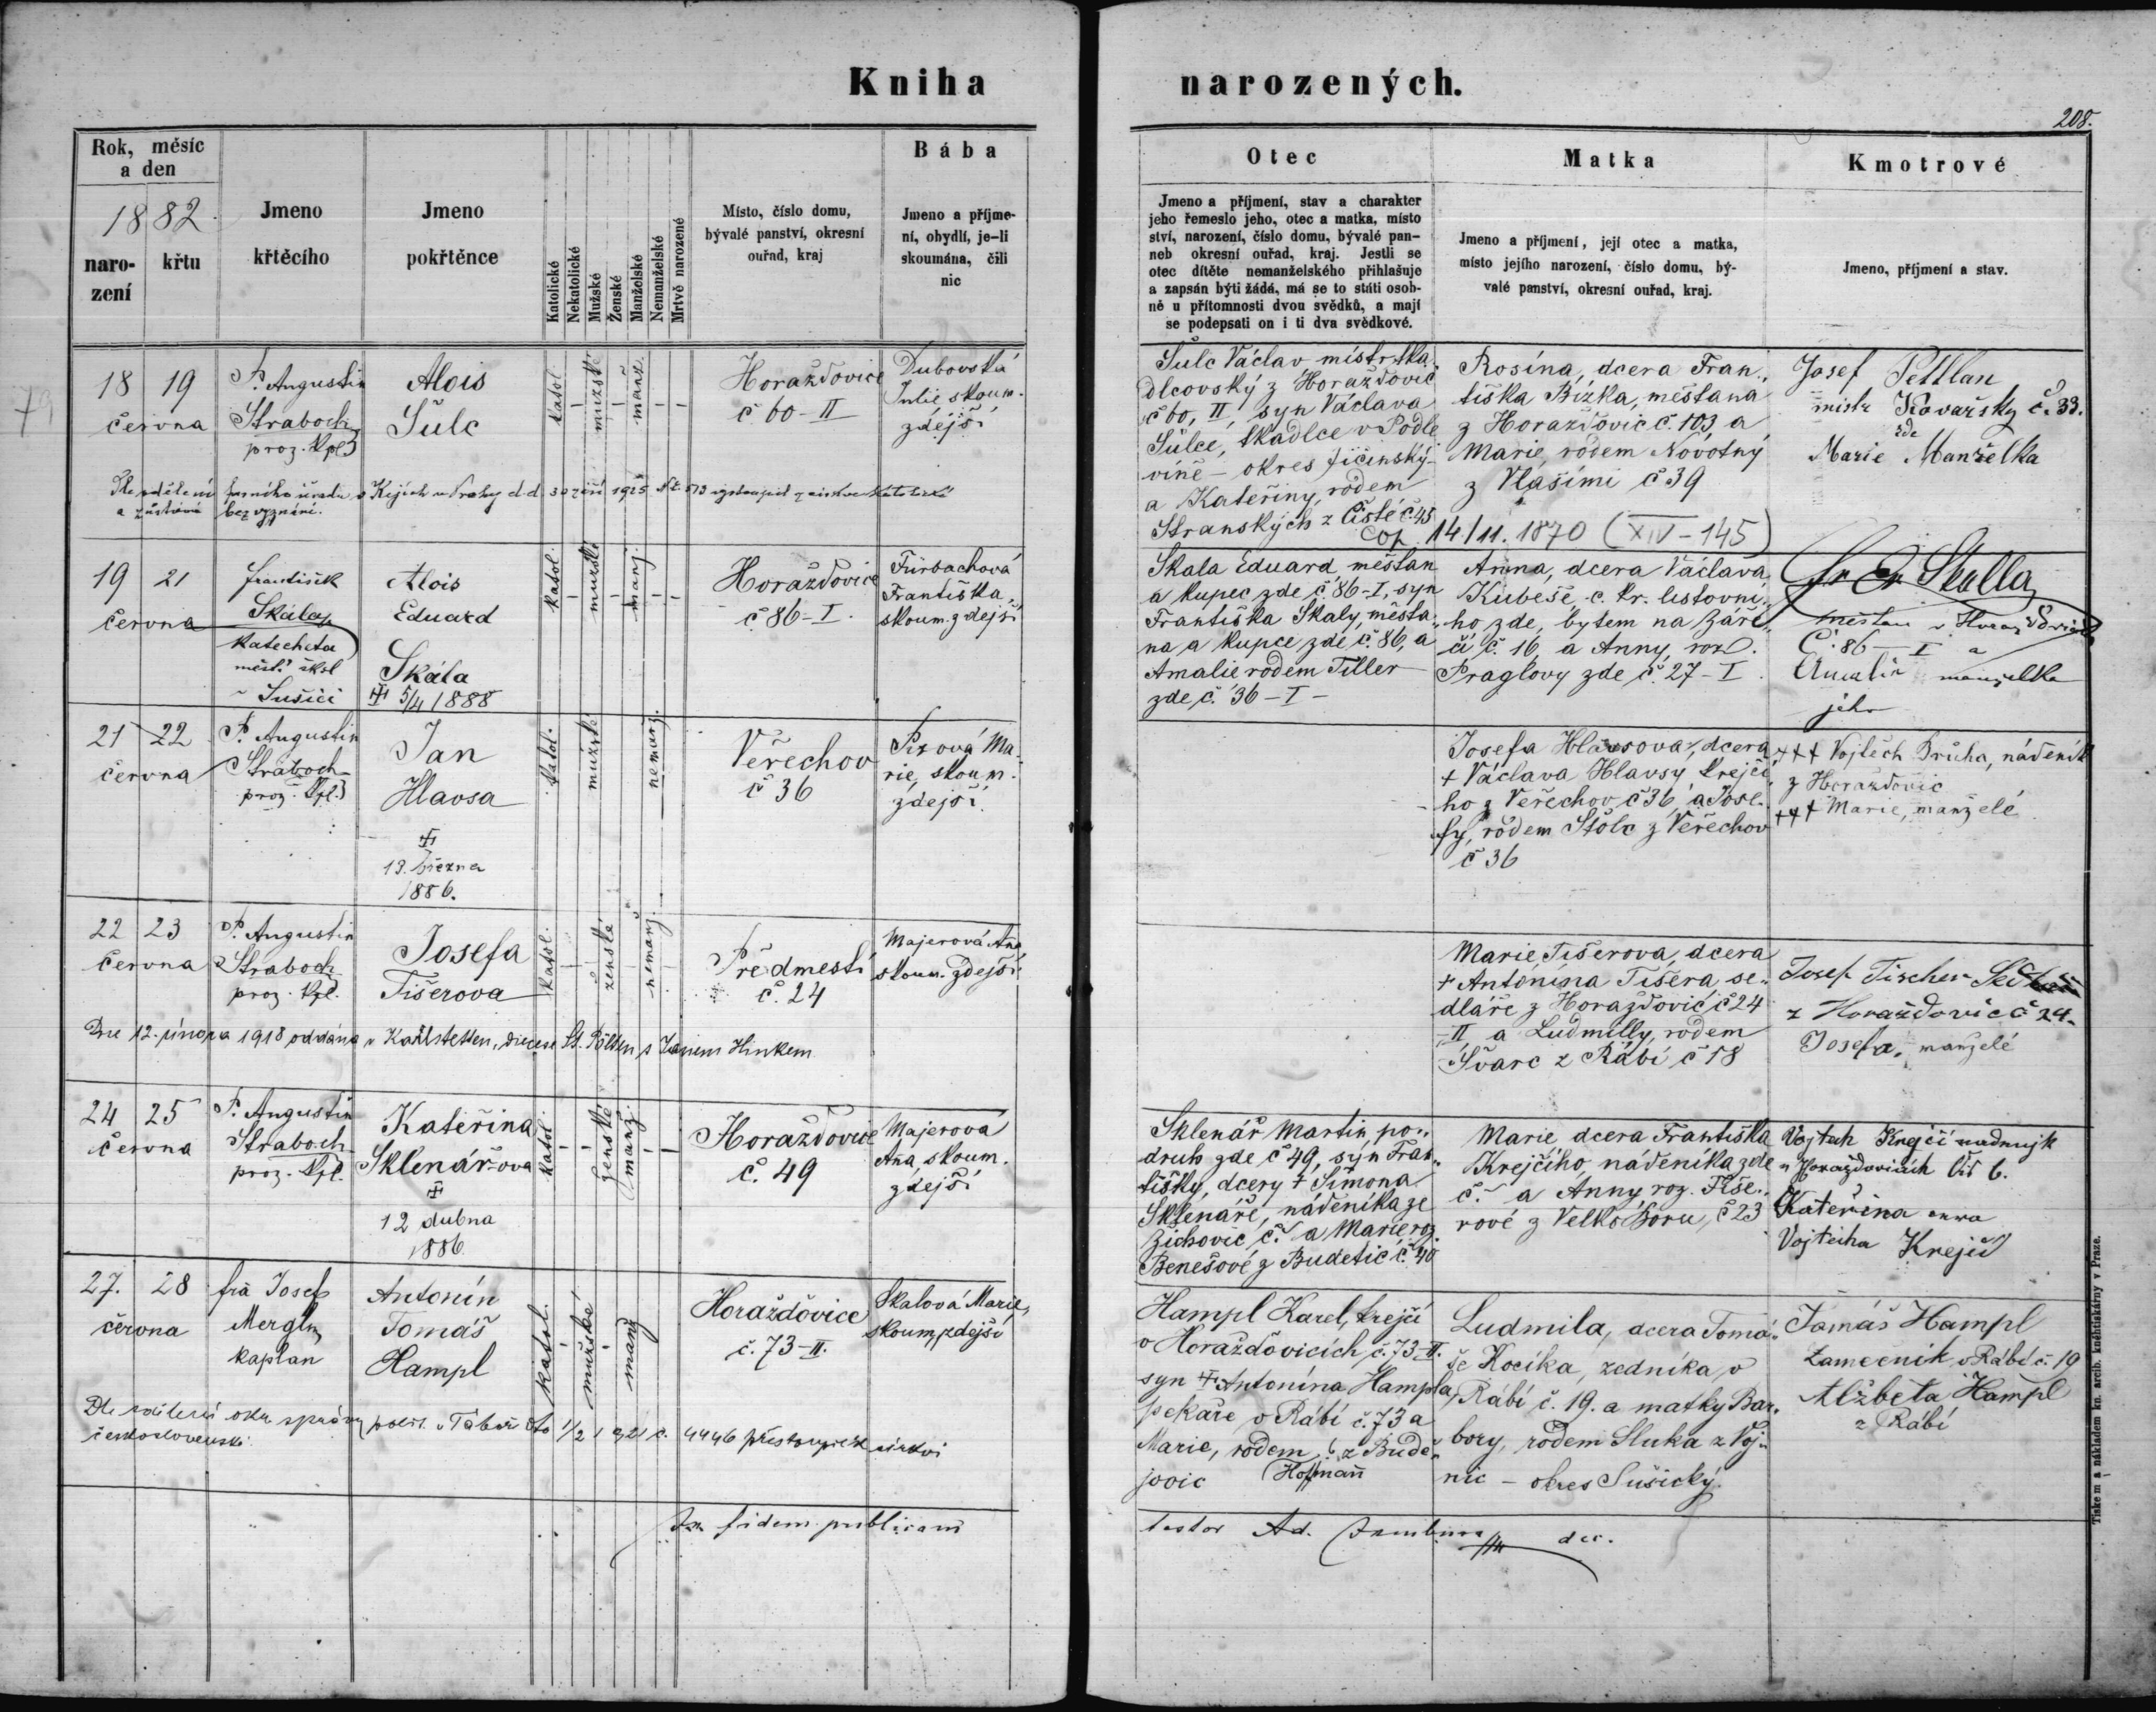 Kniha narozených.
208.
Rok, měsíc
a den
1882
naro-
zení
křtu
Jmeno
křtěcího
Jmeno
pokřtěnce
Katolické
Nekatolické
Mužské
Ženské
Manželské
Nemanželské
Mrtvě narozené
Místo, číslo domu,
bývalé panství, okresní
ouřad, kraj
Bába
Jmeno a příjme-
ní, obydlí, je-li
skoumána, čili
nic
Otec
Jmeno a příjmení, stav a charakter
jeho řemeslo jeho, otec a matka, místo
ství, narození, číslo domu, bývalé pan-
neb okresní ouřad, kraj. Jestli se
otec dítěte nemanželského přihlašuje
a zapsán býti žádá, má se to státi osob-
ně u přítomnosti dvou svědků, a mají
se podepsati on i ti dva svědkové.
Matka
Jmeno a příjmení, její otec a matka,
místo jejího narození, číslo domu, bý-
valé panství, okresní ouřad, kraj.
Kmotrové
Jmeno, příjmení a stav.
79
18 19
června
P. Augustin
Straboch
proz. kpl.
Alois
Šulc
katol.
mužské
manž.
Horažďovice
č 60-II
Dubovská
Julie skoum.
zdejší
Šulc Václav mistr tka
dlcovský z Horažďovic
č 60, II, syn Václava
Šulce, tkadlce v Podle
víně - okres Jičínský-
a Kateřiny, rodem
Stranských z Čisté č. 45
Rosina, dcera Fran-
tiška Bízka, měštana
z Horažďovic č. 103 a
Marie, rodem Novotný
z Vlašimi č 39
cop. 14/11. 1870 (XIV-145)
Josef Pettlan
mistr Kovařsky č. 33.
zde
Marie Manželka
Dle sdělení farního úřadu v Kyjích u Prahy d.d. 30 září 1925 č. 513 vystoupil z církve katolické
a zůstává bez vyznání.
19 21
června
František
Skála
katecheta
měst. škol
v Sušici
Alois
Eduard
Skála
5/4 1888
katol.
mužské
manž.
Horažďovice
č 86-I.
Fürbachová
Františka,
skoum. zdejší
Skala Eduard, měštan
a kupec zde č. 86-I, syn
Františka Skaly, měšta-
na a kupce zde č. 86, a
Amalie rodem Tiller
zde č. 36-I-
Anna, dcera Václava
Kubeše c. kr. listovní-
ho zde, bytem na Záře-
čí č. 16, a Anny, roz.
Praglovy zde č. 27-I
měštan v Horažďovicích
Č. 86-I a
Amalia manželka
jeho
21 22
června
P. Augustin
Straboch
proz. kpl.
Jan
Hlavsa
13. března
1886.
katol.
mužské
nemanž.
Veřechov
č 36
Pizová Ma-
rie, skoum.
zdejší.
Josefa Hlavsova, dcera
+ Václava Hlavsy krejčí-
ho z Veřechov č 36, a Jose-
fy, rodem Štolc z Veřechov
č 36
+++ Vojtěch Brůha, nádeník
z Horažďovic
+++ Marie, manželé
22 23
června
P. Augustin
Straboch
proz. kpl.
Josefa
Tišerova
katol.
ženské
nemanž.
Předmestí
č. 24
Majerová Aňa
skoum. zdejší
Marie Tišerova, dcera
+ Antonína Tišera, se-
dláře z Horažďovic č 24
-II a Ludmilly, rodem
Švarc z Rábí č 58
Josef Tischer
z Horažďovic č 24.
Josefa, manželé
Dne 12. února 1918 oddána v Karlstetten, diecese St. Pölten s Janem Hinkem
24 25
června
P. Augustin
Straboch
proz. kpl.
Kateřina
Sklenářova
12 dubna
1886
katol.
ženské
manž.
Horažďovice
č. 49
Majerová
Aňa, skoum.
zdejší
Sklenář Martin, po-
druh zde č 49, syn Fran-
tišky, dcery + Šimona
Sklenáře, nádeníka ze
Žichovic č. a Marie roz.
Benešové z Budetic č. 40
Marie dcera Františka
Krejčího, nádeníka zde
č. a Anny roz. Fiše-
rové z Velkoboru, č 23
Vojtech Krejčí
v Horažďovicích Čís 6.
Kateřina
Vojtěcha Krejčí
27. 28
června
fra Josef
Mergl
kaplan
Antonín
Tomáš
Hampl
katol.
mužské
manž
Horažďovice
č. 73-II.
Skalová Marie,
skoum, zdejší
Hampl Karel, krejčí
v Horažďovicích, č. 73-II.
syn + Antonína Hampla,
pekaře v Rábí č. 73 a
Marie, rodem z Budě-
jovic Hoffmañ
Ludmila, dcera Tomá-
še Kocíka, zedníka, v
Rábí č. 19. a matky Bar-
bory, rodem Sluka z Voj-
nic - okres Sušický.
Tomáš Hampl
Zamečník v Rábí č. 19
Alžběta Hampl
z Rábí
Dle sdělení okr. správy polit. v Táboře dto 1/2 1921 č. 4446 přestoupil k církvi
československé.
In fidem publicam
testor Ad. dec.
Tiskem a nákladem kn. arcib. kněhtiskárny v Praze.